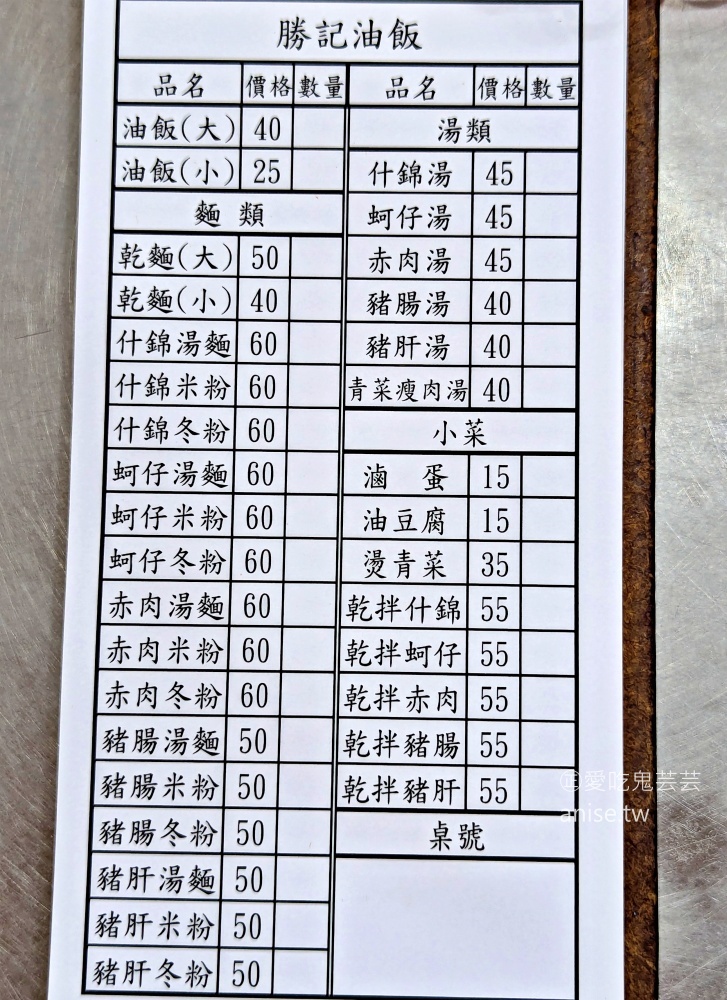 勝記油飯
品名 價格 數量 品名 價格 數量
油飯(大) 40
油飯(小) 25
麵 類
乾麵(大) 50
乾麵(小) 40
什錦湯麵 60
什錦米粉 60
什錦冬粉 60
蚵仔湯麵 60
蚵仔米粉 60
蚵仔冬粉 60
赤肉湯麵 60
赤肉米粉 60
赤肉冬粉 60
豬腸湯麵 50
豬腸米粉 50
豬腸冬粉 50
豬肝湯麵 50
豬肝米粉 50
豬肝冬粉 50
湯類
什錦湯 45
蚵仔湯 45
赤肉湯 45
豬腸湯 40
豬肝湯 40
青菜瘦肉湯 40
小菜
滷 蛋 15
油豆腐 15
燙青菜 35
乾拌什錦 55
乾拌蚵仔 55
乾拌赤肉 55
乾拌豬腸 55
乾拌豬肝 55
桌號
愛吃鬼芸芸
anise.tw